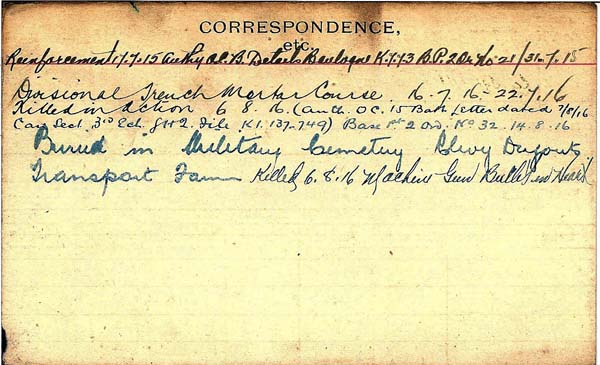 CORRESPONDENCE,
etc.
Reinforcement 17.7.15 Authy O.C. B. Details Boulogne K.773 B.P. 2 O. 21/31.7.15
Divisional Trench Mortar Course 16.7.16 - 22.7.16
Killed in action 6 8.16. (Auth. O.C. 15 Batt Letter dated 7/8/16
Can. Sect. 3rd Ech. GHQ. File K1.137-749) Base Pt 2 Ord. No 32. 14.8.16
Buried in Military Cemetery Dugouts
Transport Farm Killed 6.8.16 Machine Gun Bullet in Head